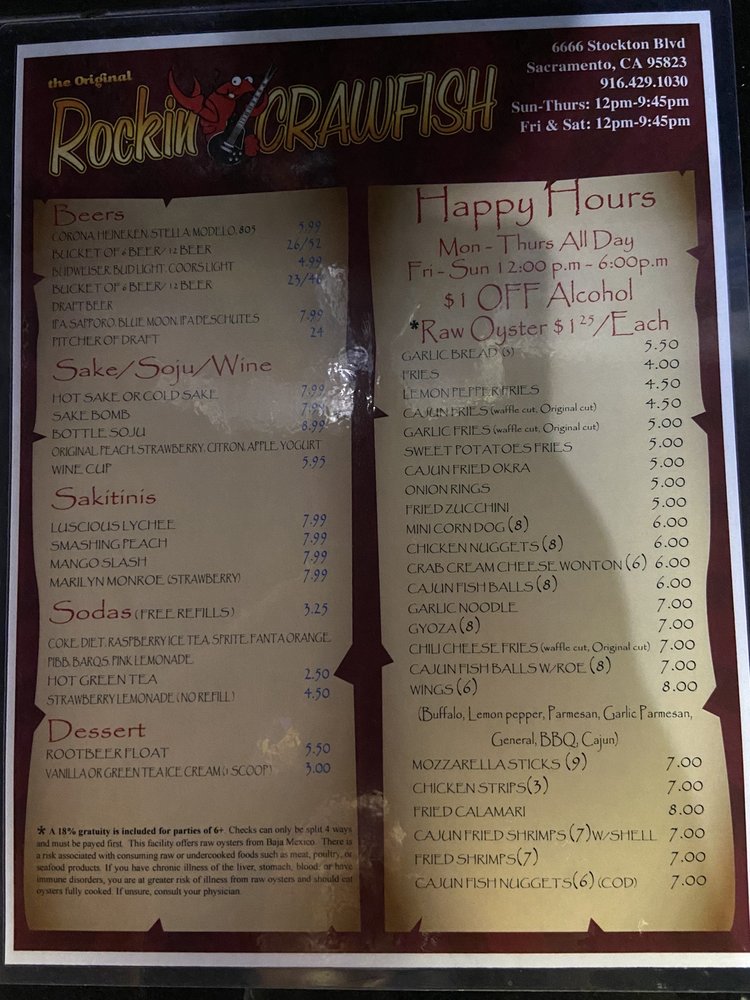 the Original
Rockin CRAWFISH
6666 Stockton Blvd
Sacramento, CA 95823
916.429.1030
Sun-Thurs: 12pm-9:45pm
Fri & Sat: 12pm-9:45pm
Beers
CORONA, HEINEKEN, STELLA, MODELO, 805 5.99
BUCKET OF 6 BEER/ 12 BEER 26/52
BUDWEISER, BUD LIGHT, COORS LIGHT 4.99
BUCKET OF 6 BEER/ 12 BEER 23/46
DRAFT BEER
IPA, SAPPORO, BLUE MOON, IPA DESCHUTES 7.99
PITCHER OF DRAFT 24
Sake/Soju/Wine
HOT SAKE OR COLD SAKE 7.99
SAKE BOMB 7.99
BOTTLE SOJU 8.99
ORIGINAL, PEACH, STRAWBERRY, CITRON, APPLE, YOGURT
WINE CUP 5.95
Sakitinis
LUSCIOUS LYCHEE 7.99
SMASHING PEACH 7.99
MANGO SLASH 7.99
MARILYN MONROE (STRAWBERRY) 7.99
Sodas (FREE REFILLS) 3.25
COKE, DIET, RASPBERRY ICE TEA, SPRITE, FANTA ORANGE,
PIBB, BARQS, PINK LEMONADE
HOT GREEN TEA 2.50
STRAWBERRY LEMONADE (NO REFILL) 4.50
Dessert
ROOTBEER FLOAT 5.50
VANILLA OR GREEN TEA ICE CREAM (1 SCOOP) 3.00
* A 18% gratuity is included for parties of 6+. Checks can only be split 4 ways
and must be payed first. This facility offers raw oysters from Baja Mexico. There is
a risk associated with consuming raw or undercooked foods such as meat, poultry, or
seafood products. If you have chronic illness of the liver, stomach, blood, or have
immune disorders, you are at greater risk of illness from raw oysters and should eat
oysters fully cooked. If unsure, consult your physician.
Happy Hours
Mon - Thurs All Day
Fri - Sun 12:00 p.m - 6:00p.m
$1 OFF Alcohol
*Raw Oyster $1.25/Each
GARLIC BREAD (3) 5.50
FRIES 4.00
LEMON PEPPER FRIES 4.50
CAJUN FRIES (waffle cut, Original cut) 4.50
GARLIC FRIES (waffle cut, Original cut) 5.00
SWEET POTATOES FRIES 5.00
CAJUN FRIED OKRA 5.00
ONION RINGS 5.00
FRIED ZUCCHINI 5.00
MINI CORN DOG (8) 6.00
CHICKEN NUGGETS (8) 6.00
CRAB CREAM CHEESE WONTON (6) 6.00
CAJUN FISH BALLS (8) 6.00
GARLIC NOODLE 7.00
GYOZA (8) 7.00
CHILI CHEESE FRIES (waffle cut, Original cut) 7.00
CAJUN FISH BALLS W/ROE (8) 7.00
WINGS (6) 8.00
(Buffalo, Lemon pepper, Parmesan, Garlic Parmesan,
General, BBQ, Cajun)
MOZZARELLA STICKS (9) 7.00
CHICKEN STRIPS(3) 7.00
FRIED CALAMARI 8.00
CAJUN FRIED SHRIMPS (7)W/SHELL 7.00
FRIED SHRIMPS(7) 7.00
CAJUN FISH NUGGETS(6) (COD) 7.00